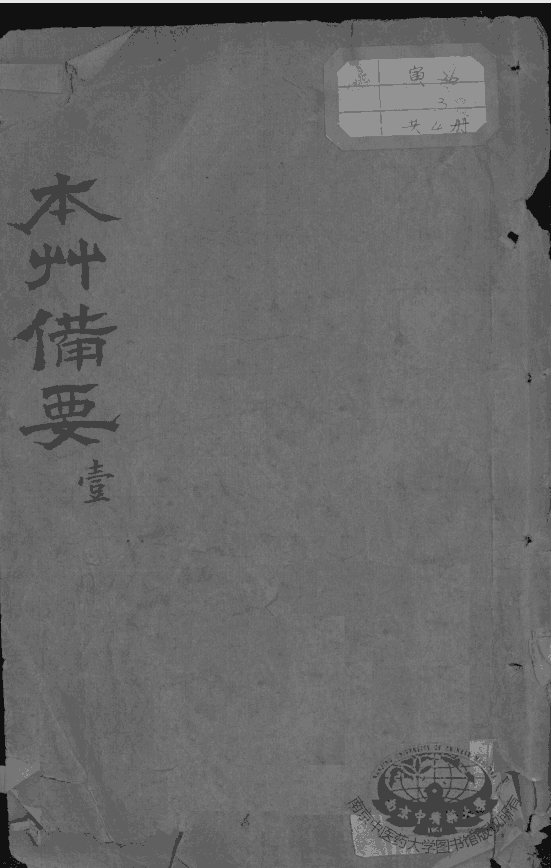 本艸備要
壹
寅 26
3
共4册
南京中医药大学图书馆